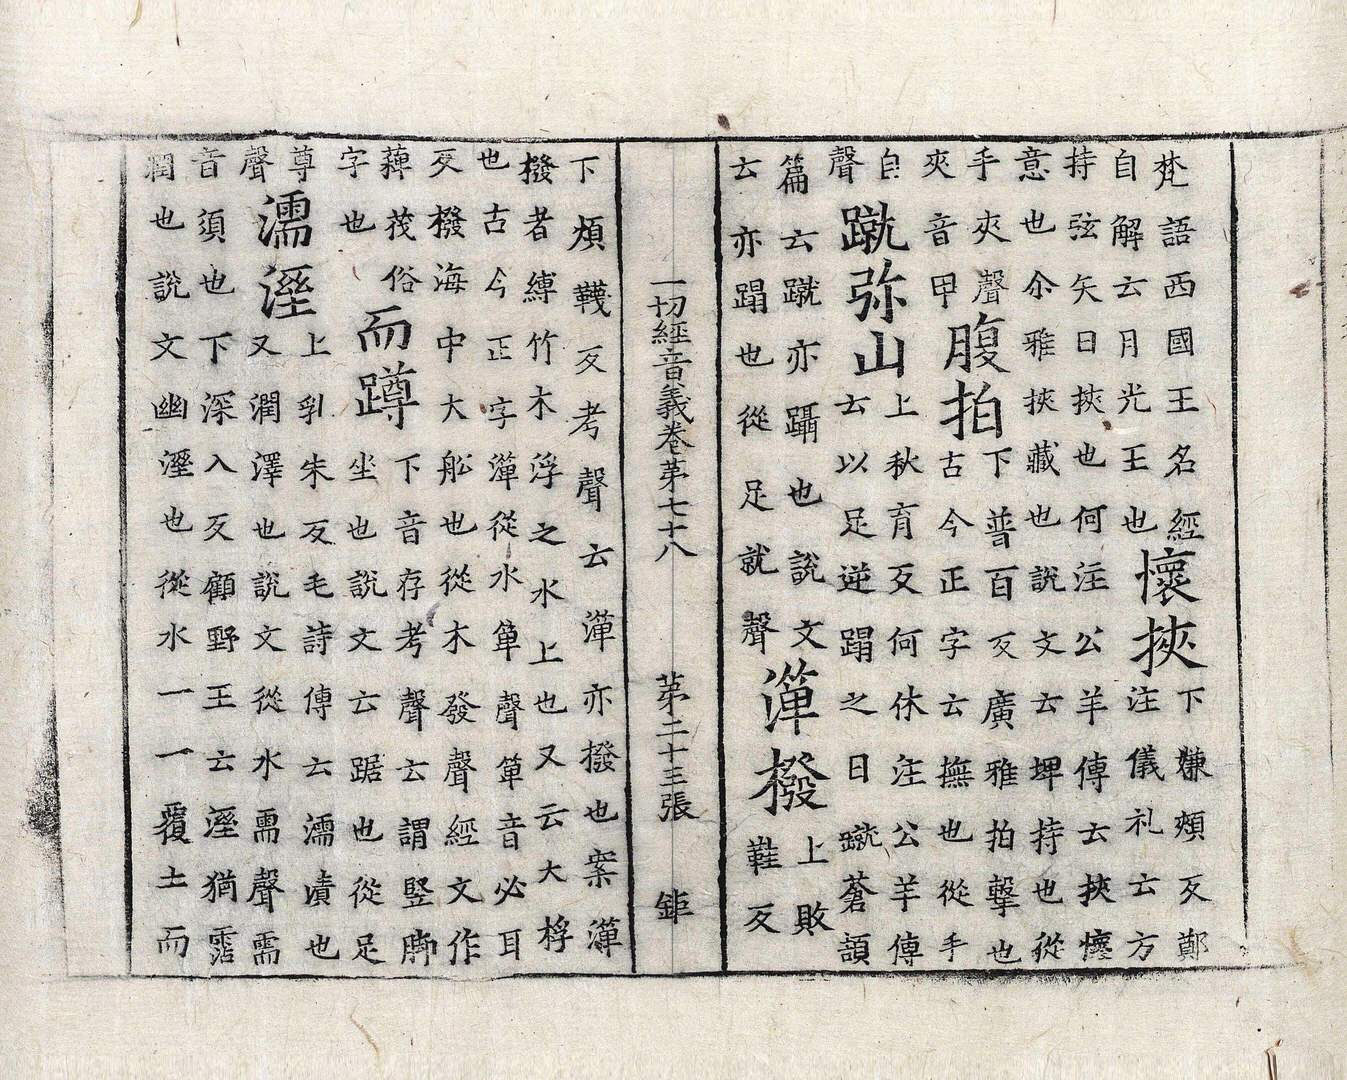 梵語西國王名經
自解云月光王也
懷挾
下嫌頰反鄭
注儀礼云方
持弦矢曰挾也何注公羊傳云挾懷
意也尒雅挾藏也說文云埤持也從
手夾聲
夾音甲
腹拍
下普百反廣雅拍擊也
古今正字云撫也從手
白
聲
蹴弥山
上秋育反何休注公羊傳
云以足逆蹋之曰蹴蒼頡
篇云蹴亦躡也說文
云亦蹋也從足就聲
⿰氵箄橃
上敗
鞋反
一切經音義卷第七十八 第二十三張 鉅
下煩韈反考聲云⿰氵箄亦撥也案⿰氵箄
撥者縛竹木浮之水上也又云大桴
也古今正字⿰氵箄從水箄聲箄音必耳
反橃海中大船也從木發聲經文作
茷俗
字也
而蹲
下音存考聲云謂竪脚
坐也說文云踞也從足
尊
聲
濡溼
上乳朱反毛詩傳云濡漬也
又潤澤也說文從水需聲需
音須也下深入反顧野王云溼猶霑
潤也說文幽溼也從水一一覆土而